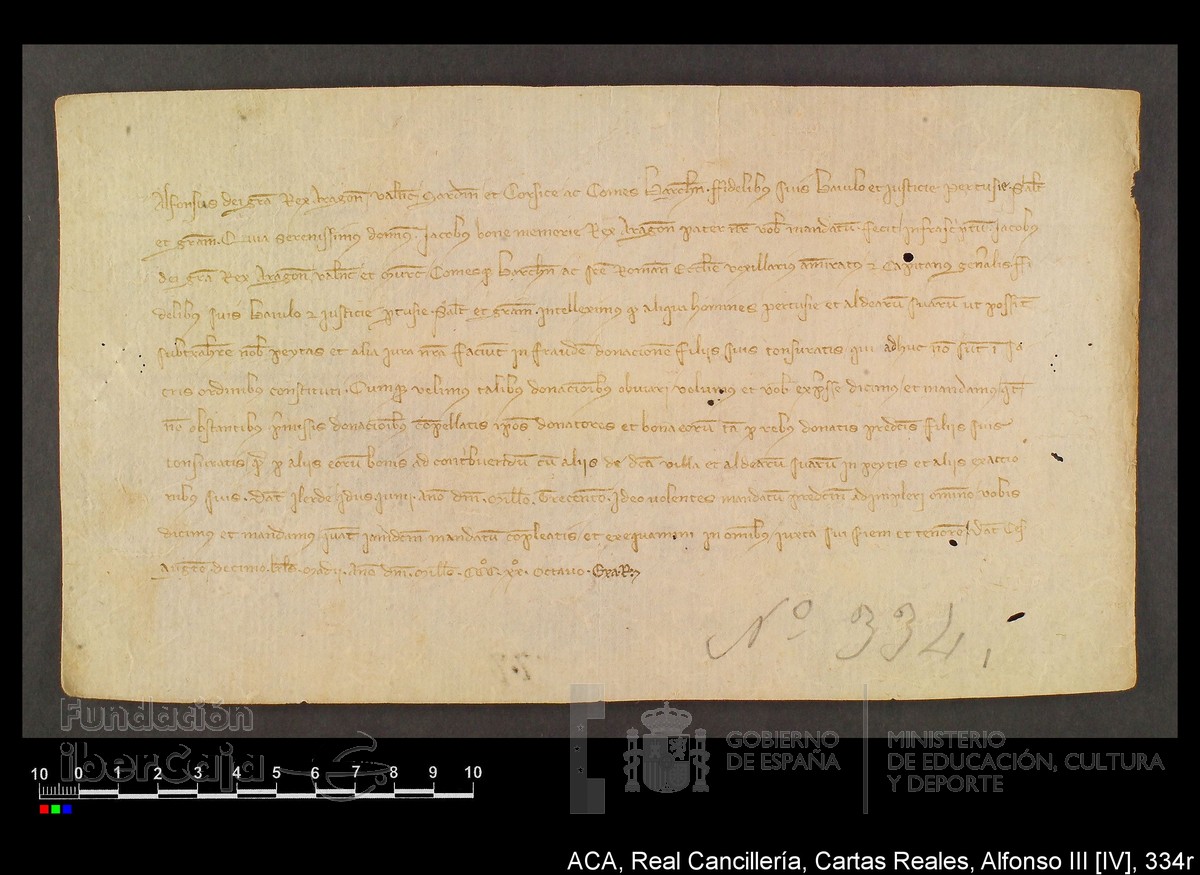 Alfonsus dei gra Rex Aragon Valenc Sardin et Corsice ac Comes Barchn. ffidelibus suis Baiulo et justicie Pertusie. Salt
et gram. Quia serenissimus domnus Jacobus bone memorie Rex Aragon pater nr vob mandatu fecit infrascptu. Jacobus
dei gra Rex Aragon Valenc et Murc Comesq Barchn ac sce Roman Ecclie vexillarius amiratus et Capitaneus gnalis ffi
delibus suis Baiulo et justicie Ptusie. Salt et gram. intelleximus qp aliqui homines Pertusie et aldearu suaru ut possit
subtrahre nob peytas et alia jura nra faciut in fraude donacione filiis suis tonsuratis qui adhuc no sut i sa
cris ordinibus constituti. Cumqp velimus talibus donacionibus obviari volumus et vob expsse dicimus et mandamus qt
no obstantibus pmissis donacionibus compellatis ipos donatores et bona eoru ta p rebus donatis predictis filiis suis
tonsuratis q p aliis eoru bonis ad contbuendu cu aliis de dca villa et aldearu suaru in peytis et aliis exactio
nibus suis. Dat Ilerde Idus Junii. Ano dni Millo Trecento. Ideo volentes mandatu predcm adimpleri omnino vobis
dicimus et mandamus quat iamdcm mandatu copleatis et exequamini in omibus juxta sui siem et tenore. Dat Ces
Auguste Decimo klls Madii. Ano dni Millo CCCo xxo Octavo.
No 334,
Fundación
iberCaja
GOBIERNO
DE ESPAÑA
MINISTERIO
DE EDUCACIÓN, CULTURA
Y DEPORTE
10 0 1 2 3 4 5 6 7 8 9 10
ACA, Real Cancillería, Cartas Reales, Alfonso III [IV], 334r